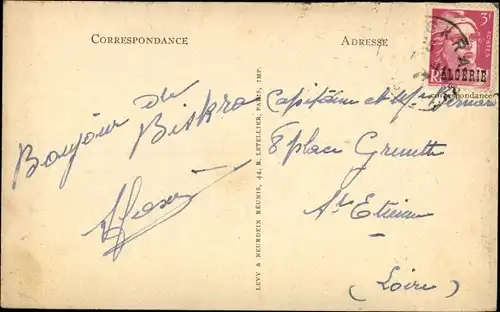 CORRESPONDANCE
ADRESSE
3F
POSTES
ALGERIE
Bonjour de
Biskra
LEVY & NEURDEIN RÉUNIS, 44, R. LETELLIER, PARIS, IMP.
Capitaine et Mme
8 place Grenette
St Etienne
(Loire)